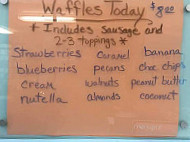 Waffles Today $8.00
* Includes sausage and
2-3 toppings *
Strawberries Caramel banana
blueberries pecans choc chips
cream walnuts peanut butter
nutella almonds coconut